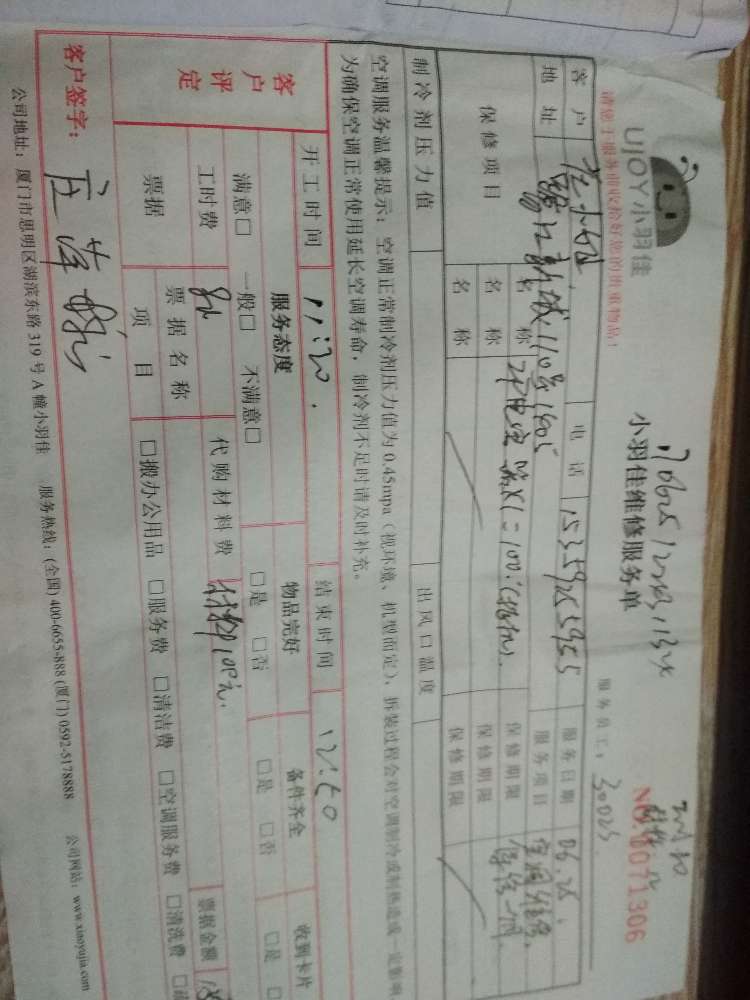 UJOY小羽佳
小羽佳维修服务单
NO.0071306
请您于服务前收拾好您的贵重物品！
服务员工：30003
客户 庄小姐 电话 15359255955 服务日期 06.25.
地址 鹭江新城110号1605 服务项目 空调维修
保修项目 名称 保修期限 保修一个月
名称 保修期限
名称 保修期限
制冷剂压力值 出风口温度
空调服务温馨提示：空调正常制冷剂压力值为0.45mpa（视环境、机型而定），拆装过程会对空调制冷或制热造成一定影响
为确保空调正常使用延长空调寿命，制冷剂不足时请及时补充。
开工时间 11:20. 结束时间 12:50
客户评定 服务态度 物品完好 备件齐全 收到卡片
满意□ 一般□ 不满意□ □是 □否 □是 □否 □是 □
工时费 代购材料费 材料100元.
票据 票据名称 票据金额
项目 □搬办公用品 □服务费 □清洁费 □空调服务费 □清洗费
客户签字：
公司地址：厦门市思明区湖滨东路319号A幢小羽佳 服务热线：(全国) 400-6655-888 (厦门) 0592-5178888 公司网站：www.xiaoyujia.com